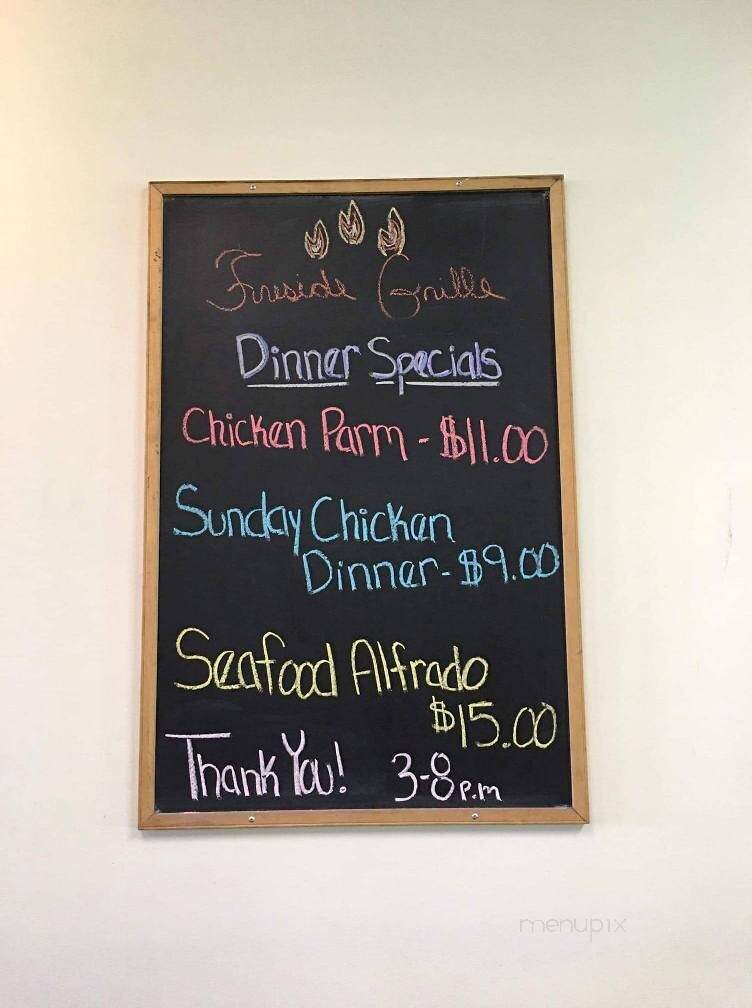 Fireside Grille
Dinner Specials
Chicken Parm - $11.00
Sunday Chicken
Dinner - $9.00
Seafood Alfredo
$15.00
Thank You! 3-8 P.m
menupix